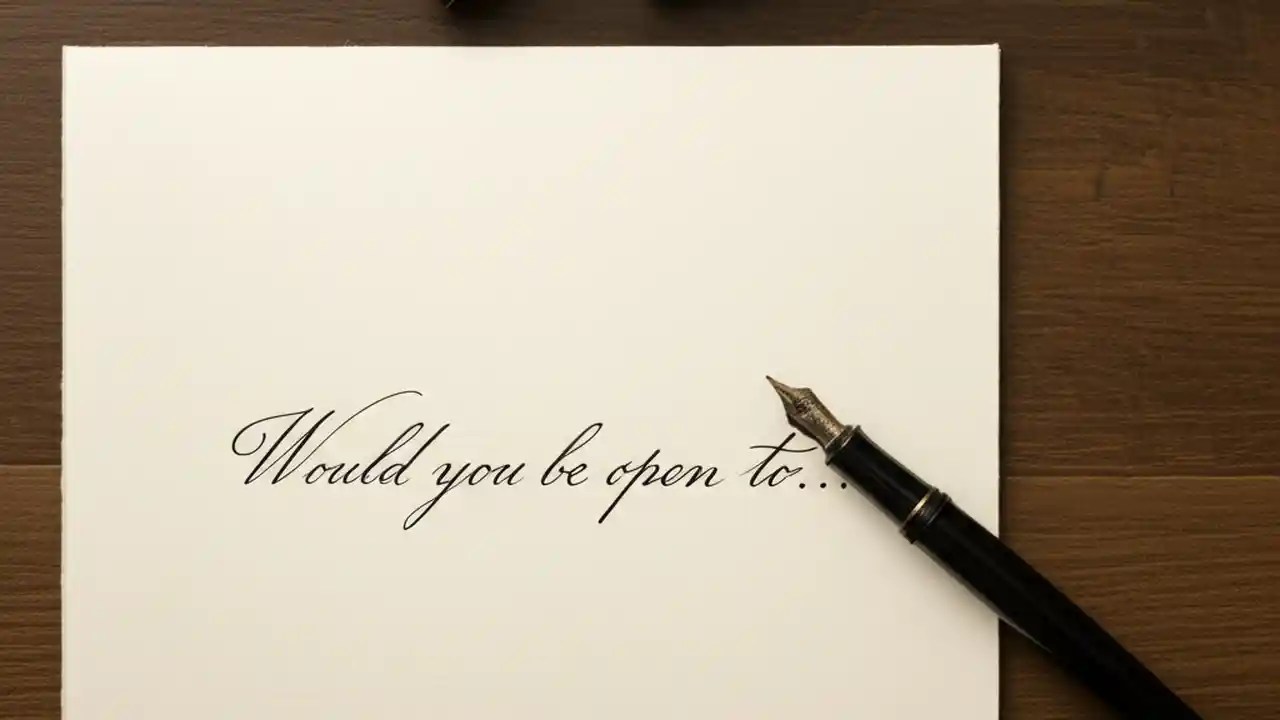 Would you be open to...